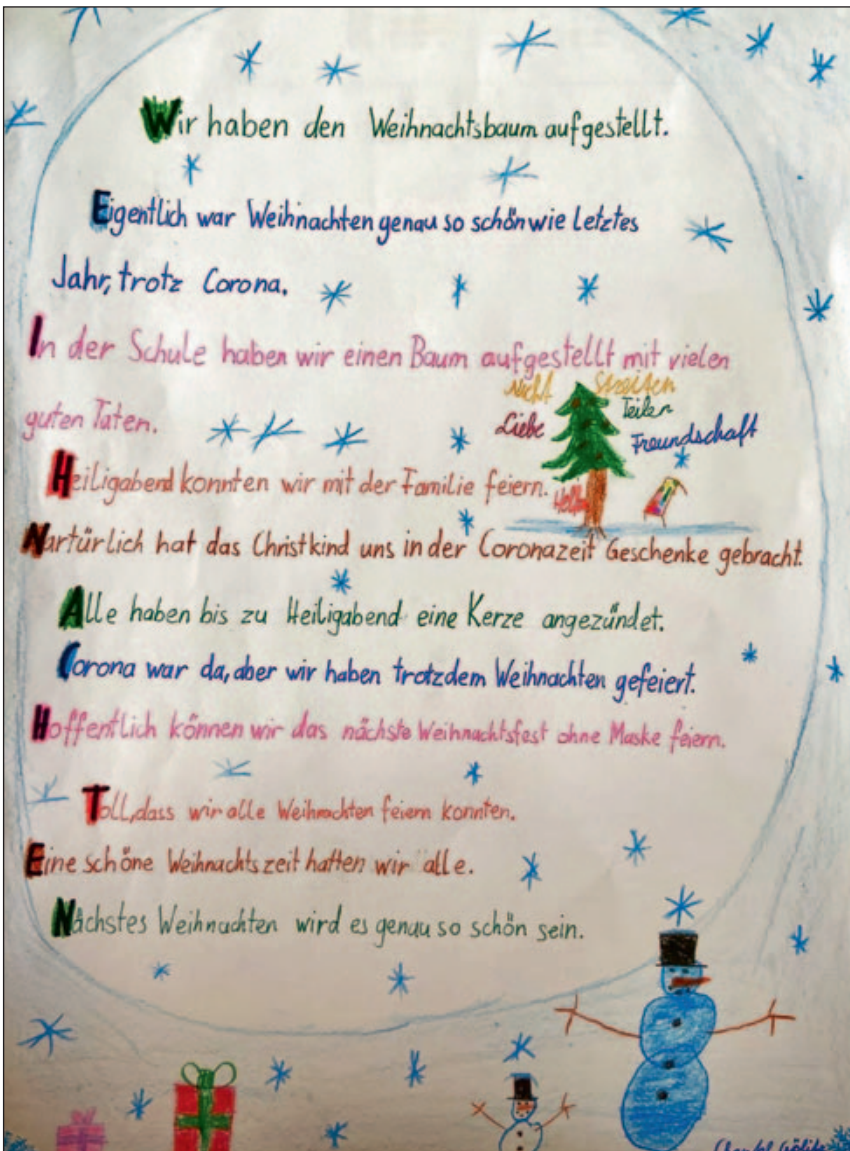 Wir haben den Weihnachtsbaum aufgestellt.
Eigentlich war Weihnachten genau so schön wie letztes
Jahr, trotz Corona.
In der Schule haben wir einen Baum aufgestellt mit vielen
guten Taten.
Nicht Streiten
Liebe Teilen
Freundschaft
Helfen
Heiligabend konnten wir mit der Familie feiern.
Nartürlich hat das Christkind uns in der Coronazeit Geschenke gebracht.
Alle haben bis zu Heiligabend eine Kerze angezündet.
Corona war da, aber wir haben trotzdem Weihnachten gefeiert.
Hoffentlich können wir das nächste Weihnachtsfest ohne Maske feiern.
Toll, dass wir alle Weihnachten feiern konnten.
Eine schöne Weihnachtszeit hatten wir alle.
Nächstes Weihnachten wird es genau so schön sein.